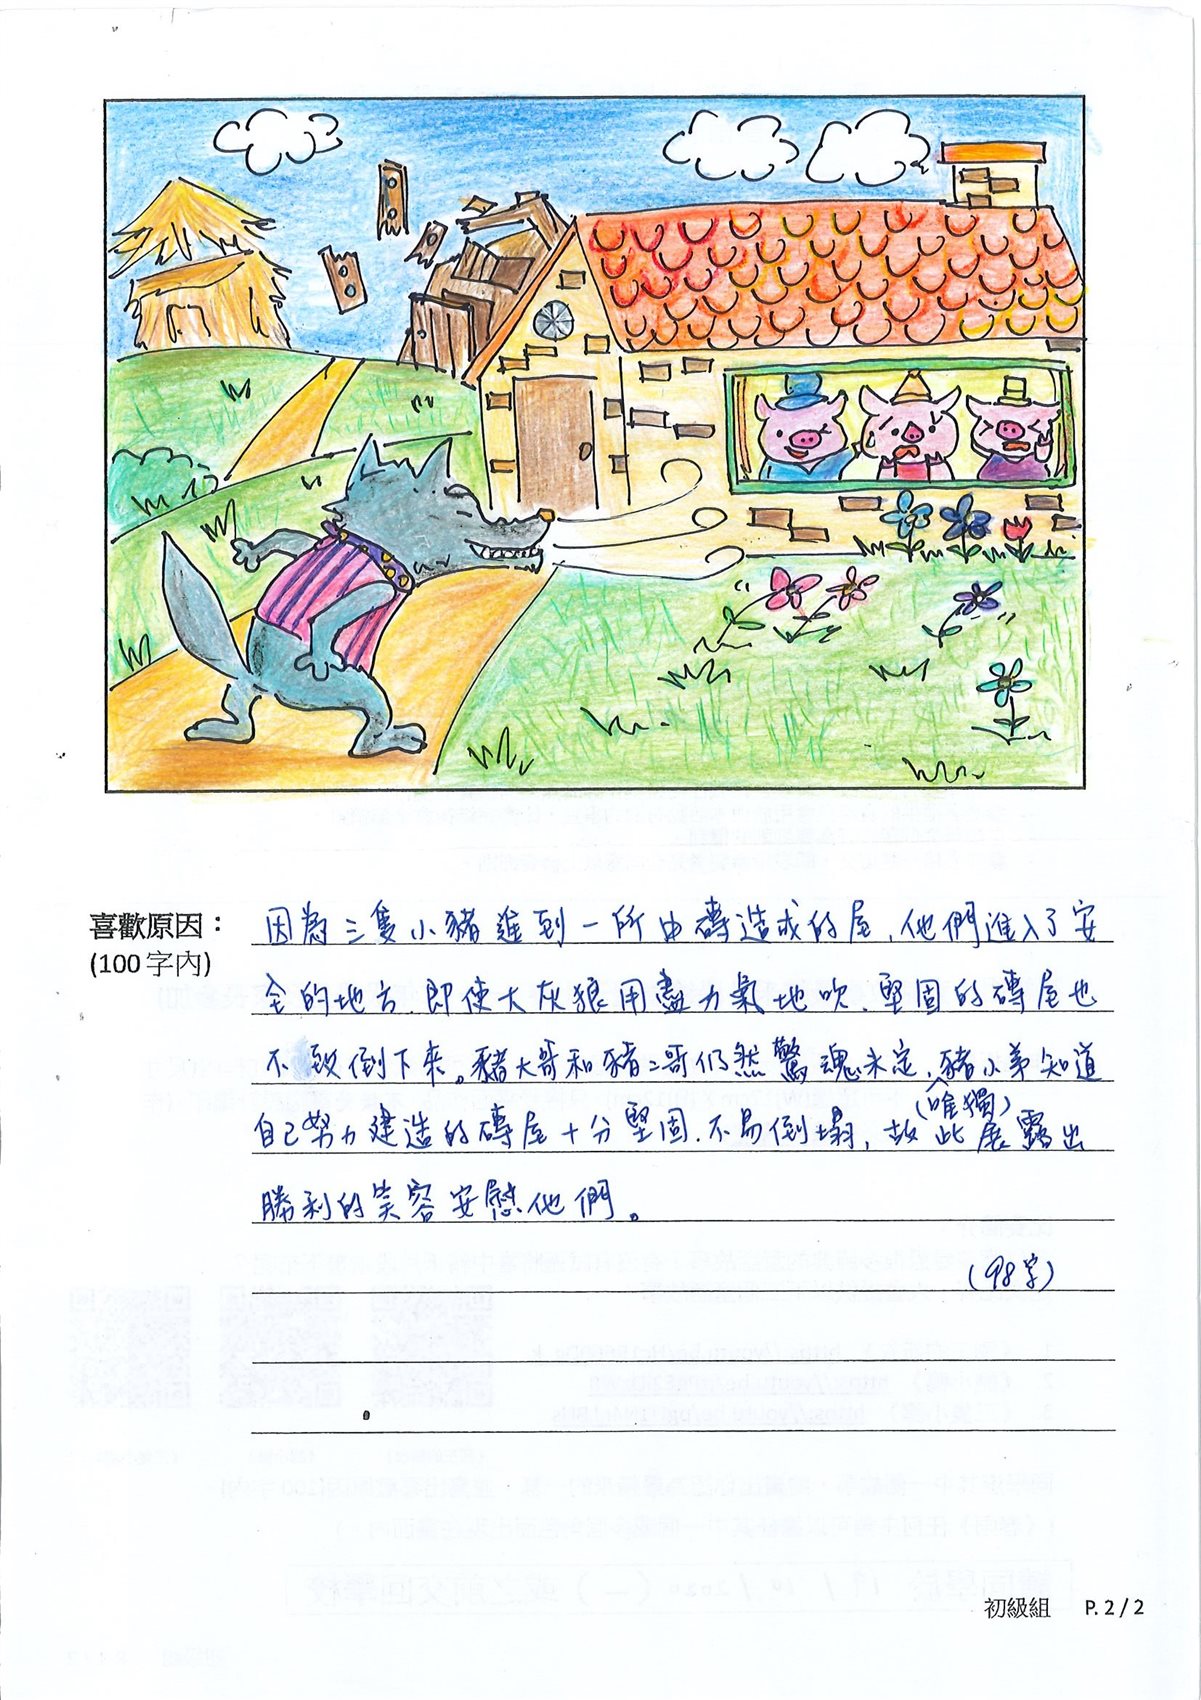 喜歡原因：
(100字內)
因為三隻小豬進到一所由磚造成的屋，他們進入了安
全的地方，即使大灰狼用盡力氣地吹，堅固的磚屋也
不致倒下來。豬大哥和豬二哥仍然驚魂未定，豬小弟知道
(唯獨)
自己努力建造的磚屋十分堅固，不易倒塌，故此展露出
勝利的笑容安慰他們。
(98字)
初級組 P. 2 / 2